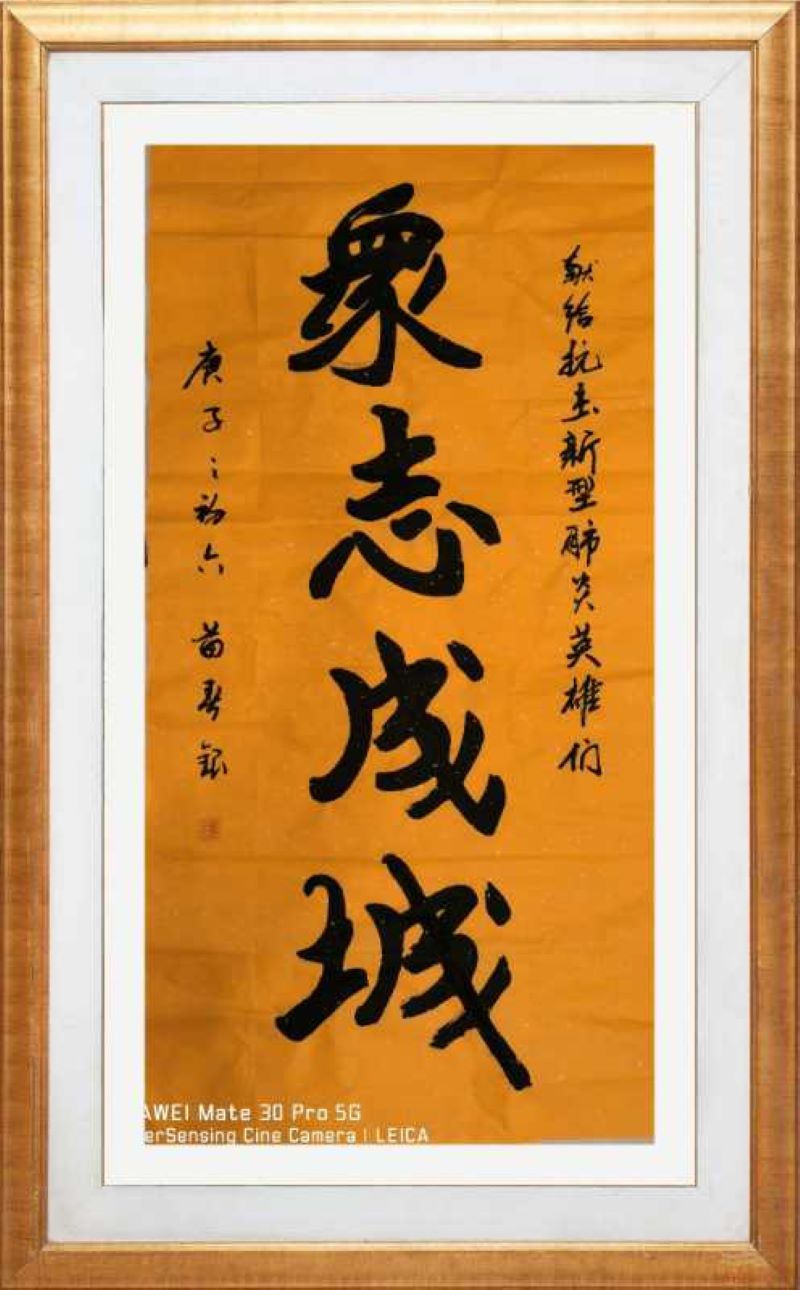 献给抗击新型肺炎英雄们
眾志成城
庚子之初六 苗春银
AWEI Mate 30 Pro 5G
erSensing Cine Camera | LEICA